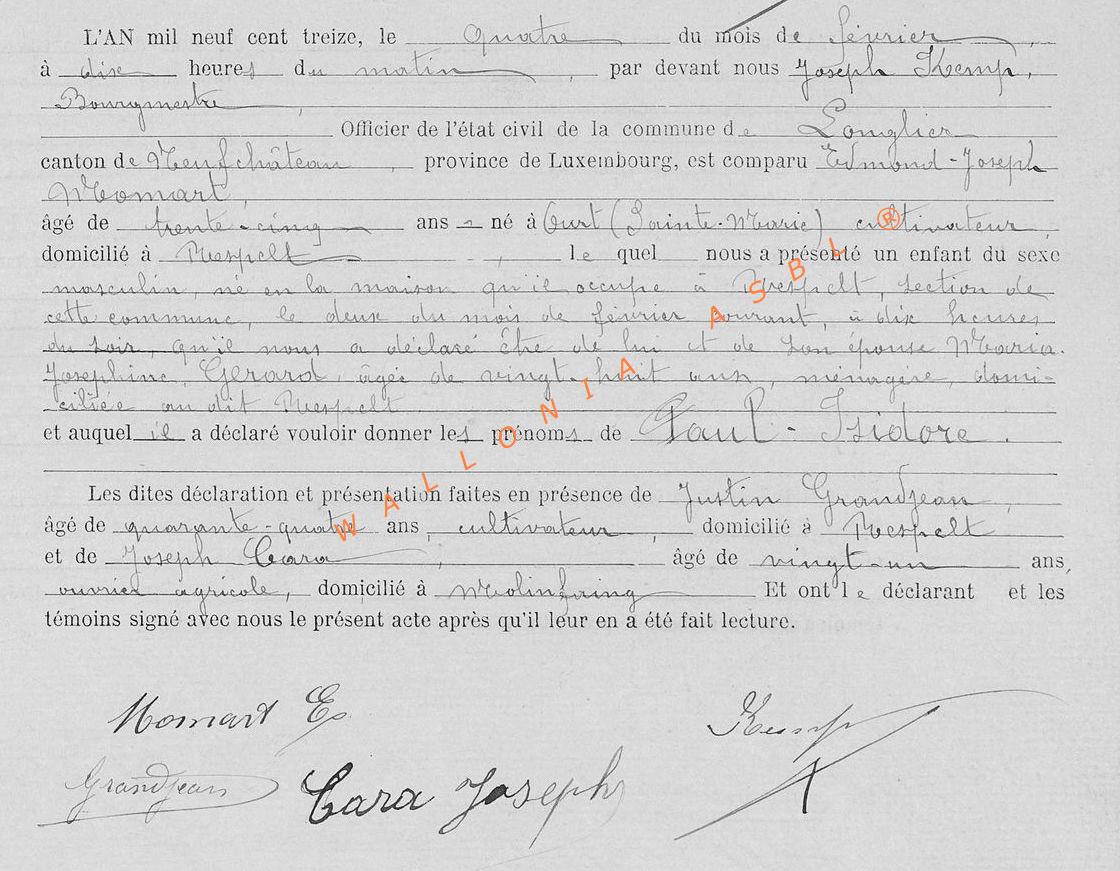 L'AN mil neuf cent treize, le quatre du mois de février,
à dix heures du matin, par devant nous Joseph Kemp,
Bourgmestre,
Officier de l'état civil de la commune de Longlier
canton de Neufchâteau, province de Luxembourg, est comparu Edmond-Joseph
Momart,
âgé de trente-cinq ans - né à Ourt (Sainte-Marie) cultivateur,
domicilié à Respelt, lequel nous a présenté un enfant du sexe
masculin, né en la maison qu'il occupe à Respelt, section de
cette commune, le deux du mois de février courant, à dix heures
du soir, qu'il nous a déclaré être de lui et de son épouse Maria-
Josephine Gerard, âgée de vingt-huit ans, ménagère, domi-
ciliée au dit Respelt
et auquel il a déclaré vouloir donner les prénoms de Paul-Isidore.
Les dites déclaration et présentation faites en présence de Justin Grandjean,
âgé de quarante-quatre ans, cultivateur, domicilié à Respelt
et de Joseph Cara, âgé de vingt-un ans,
ouvrier agricole, domicilié à Molinfaing Et ont le déclarant et les
témoins signé avec nous le présent acte après qu'il leur en a été fait lecture.
Momart E. Kemp
Grandjean Cara Joseph
WALLONIA ASBL ®